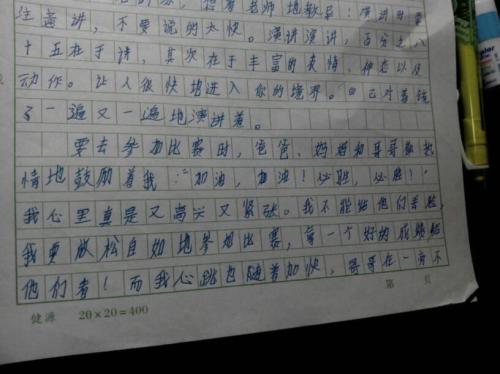 想着老师地教导：演讲时要
注意讲，不要说的太快。演讲演讲，百分之八
十五在于讲，其次在于丰富的表情、神态以及
动作。让人很快地进入你的境界。自己对着镜
子一遍又一遍地演讲着。
要去参加比赛时，爸爸、妈妈和哥哥热
情地鼓励着我：“加油，加油！必胜，必胜！”
我心里真是又高兴又紧张。我不能给他们丢脸，
我要放松自如地参加比赛，拿一个好的成绩给
他们看！而我心跳也随着加快，哥哥在一旁不
健源 20×20=400 第 页